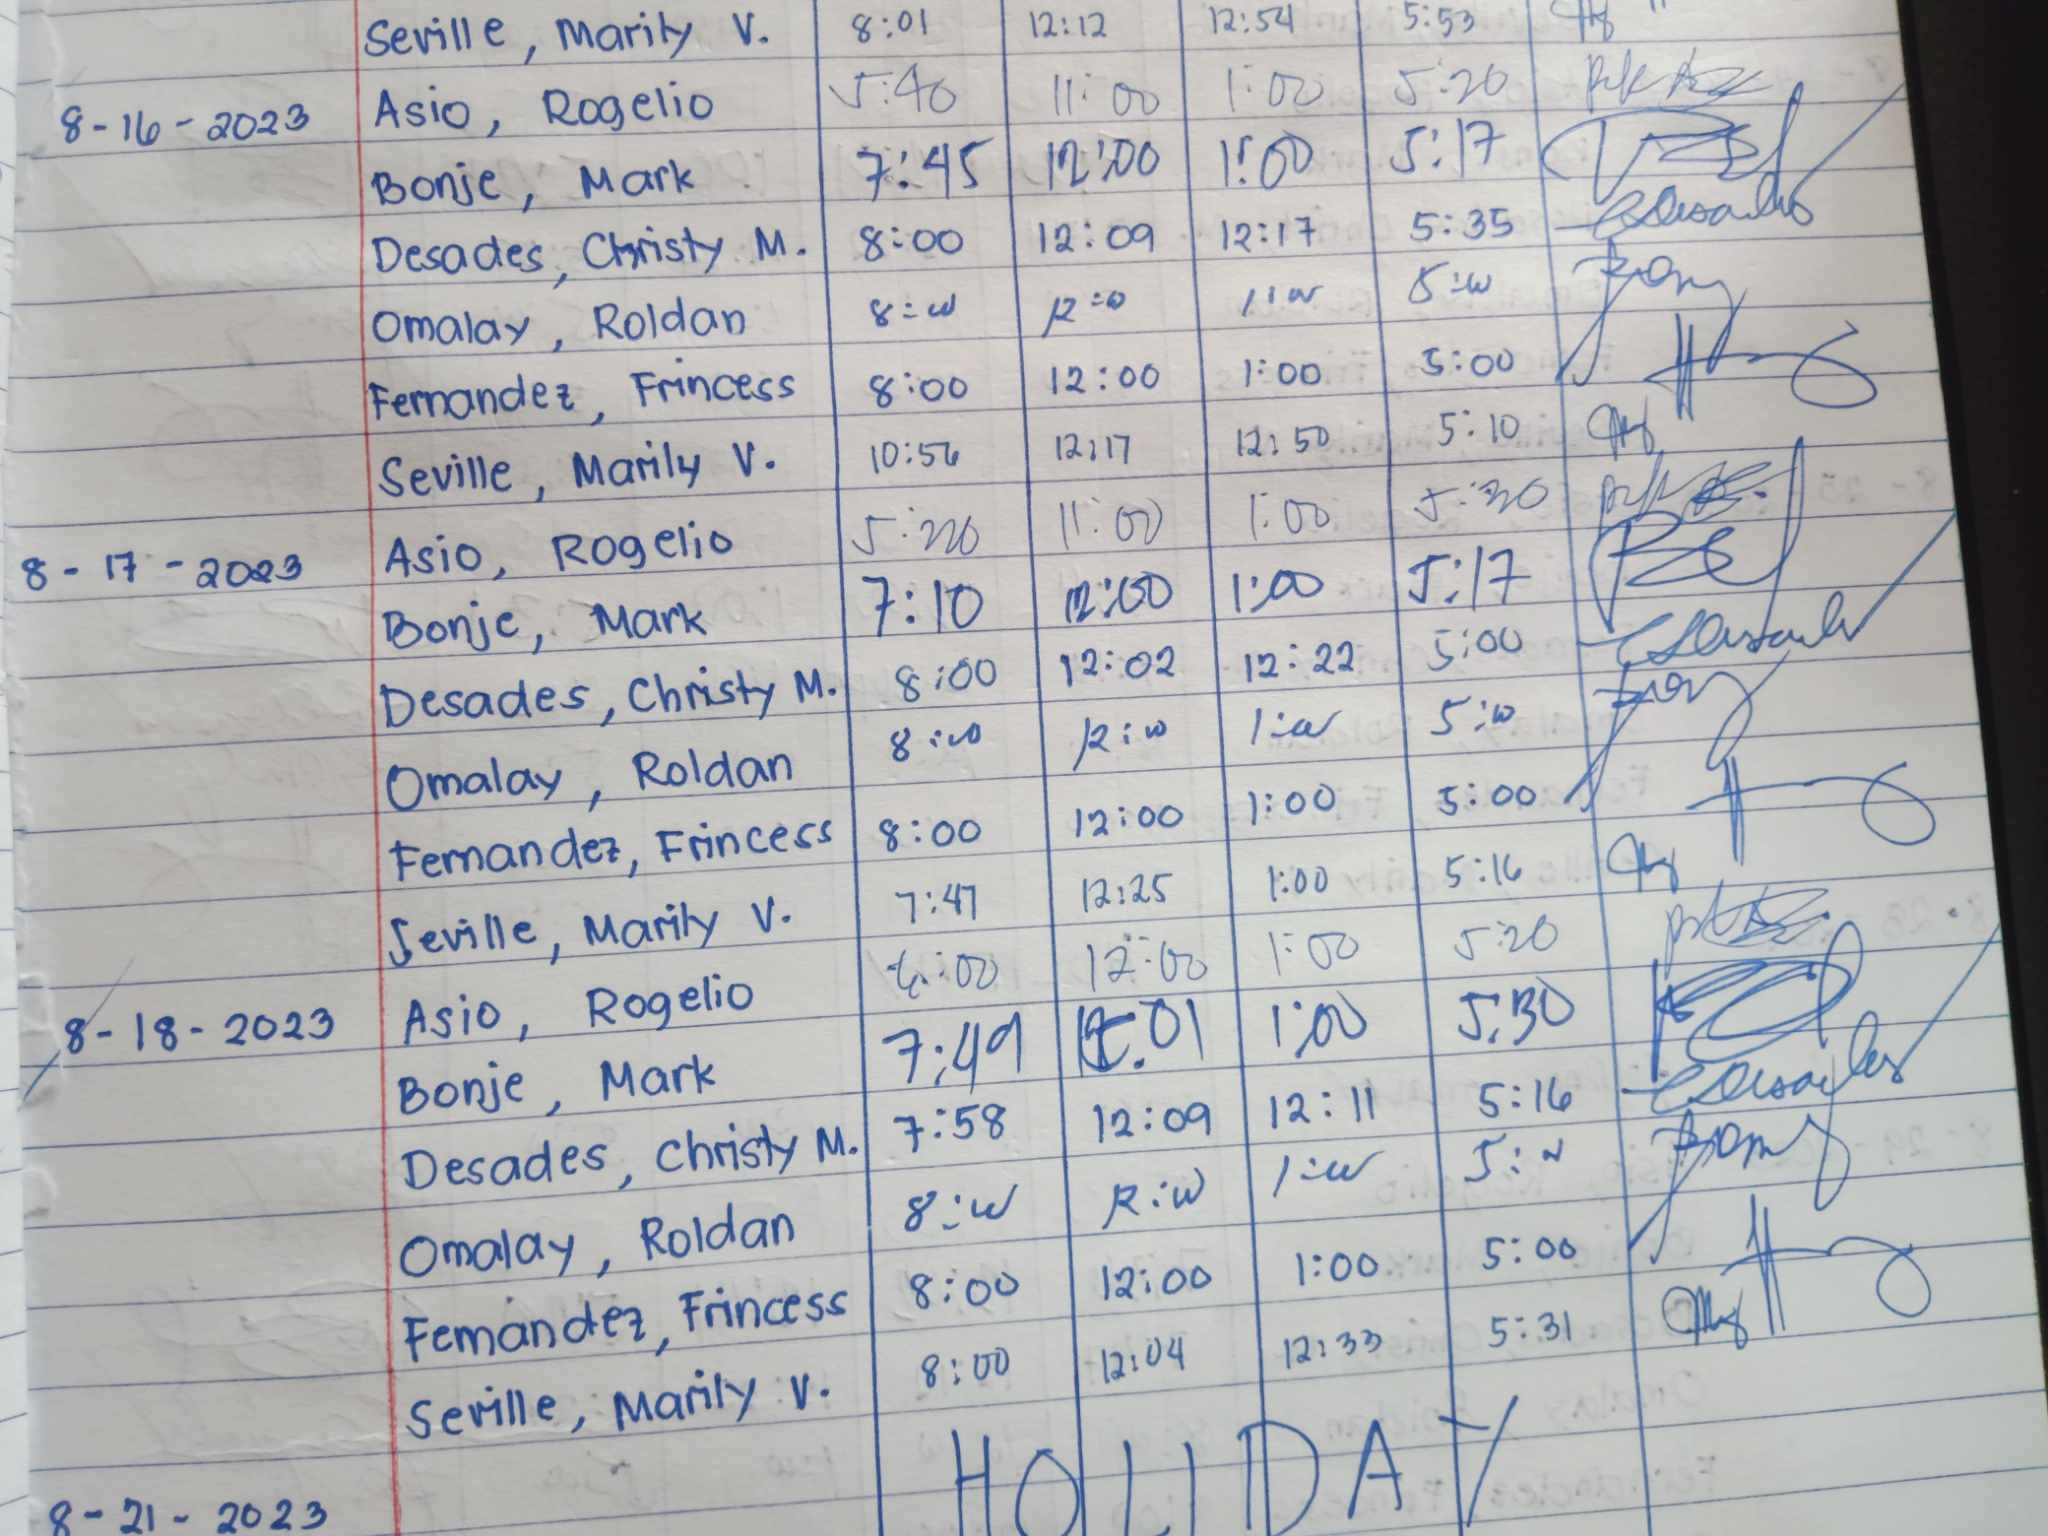 Seville, Marily V. 8:01 12:12 12:54 5:53
8-16-2023 Asio, Rogelio 5:40 11:00 1:00 5:20
Bonje, Mark 7:45 12:00 1:00 5:17
Desades, Christy M. 8:00 12:09 12:17 5:35
Omalay, Roldan 8:00 12:00 1:00 5:00
Fernandez, Frincess 8:00 12:00 1:00 5:00
Seville, Marily V. 10:56 12:17 12:50 5:10
8-17-2023 Asio, Rogelio 11:00 1:00
Bonje, Mark 7:10 12:00 1:00 5:17
Desades, Christy M. 8:00 12:02 12:22 5:00
Omalay, Roldan 8:00 12:00 1:00 5:00
Fernandez, Frincess 8:00 12:00 1:00 5:00
Seville, Marily V. 7:47 12:25 1:00 5:16
8-18-2023 Asio, Rogelio 12:00 1:00 5:20
Bonje, Mark 7:49 12:01 1:00 5:30
Desades, Christy M. 7:58 12:09 12:11 5:16
Omalay, Roldan 8:00 12:00 1:00
Fernandez, Frincess 8:00 12:00 1:00 5:00
Seville, Marily V. 8:00 12:04 12:33 5:31
8-21-2023 HOLIDAY